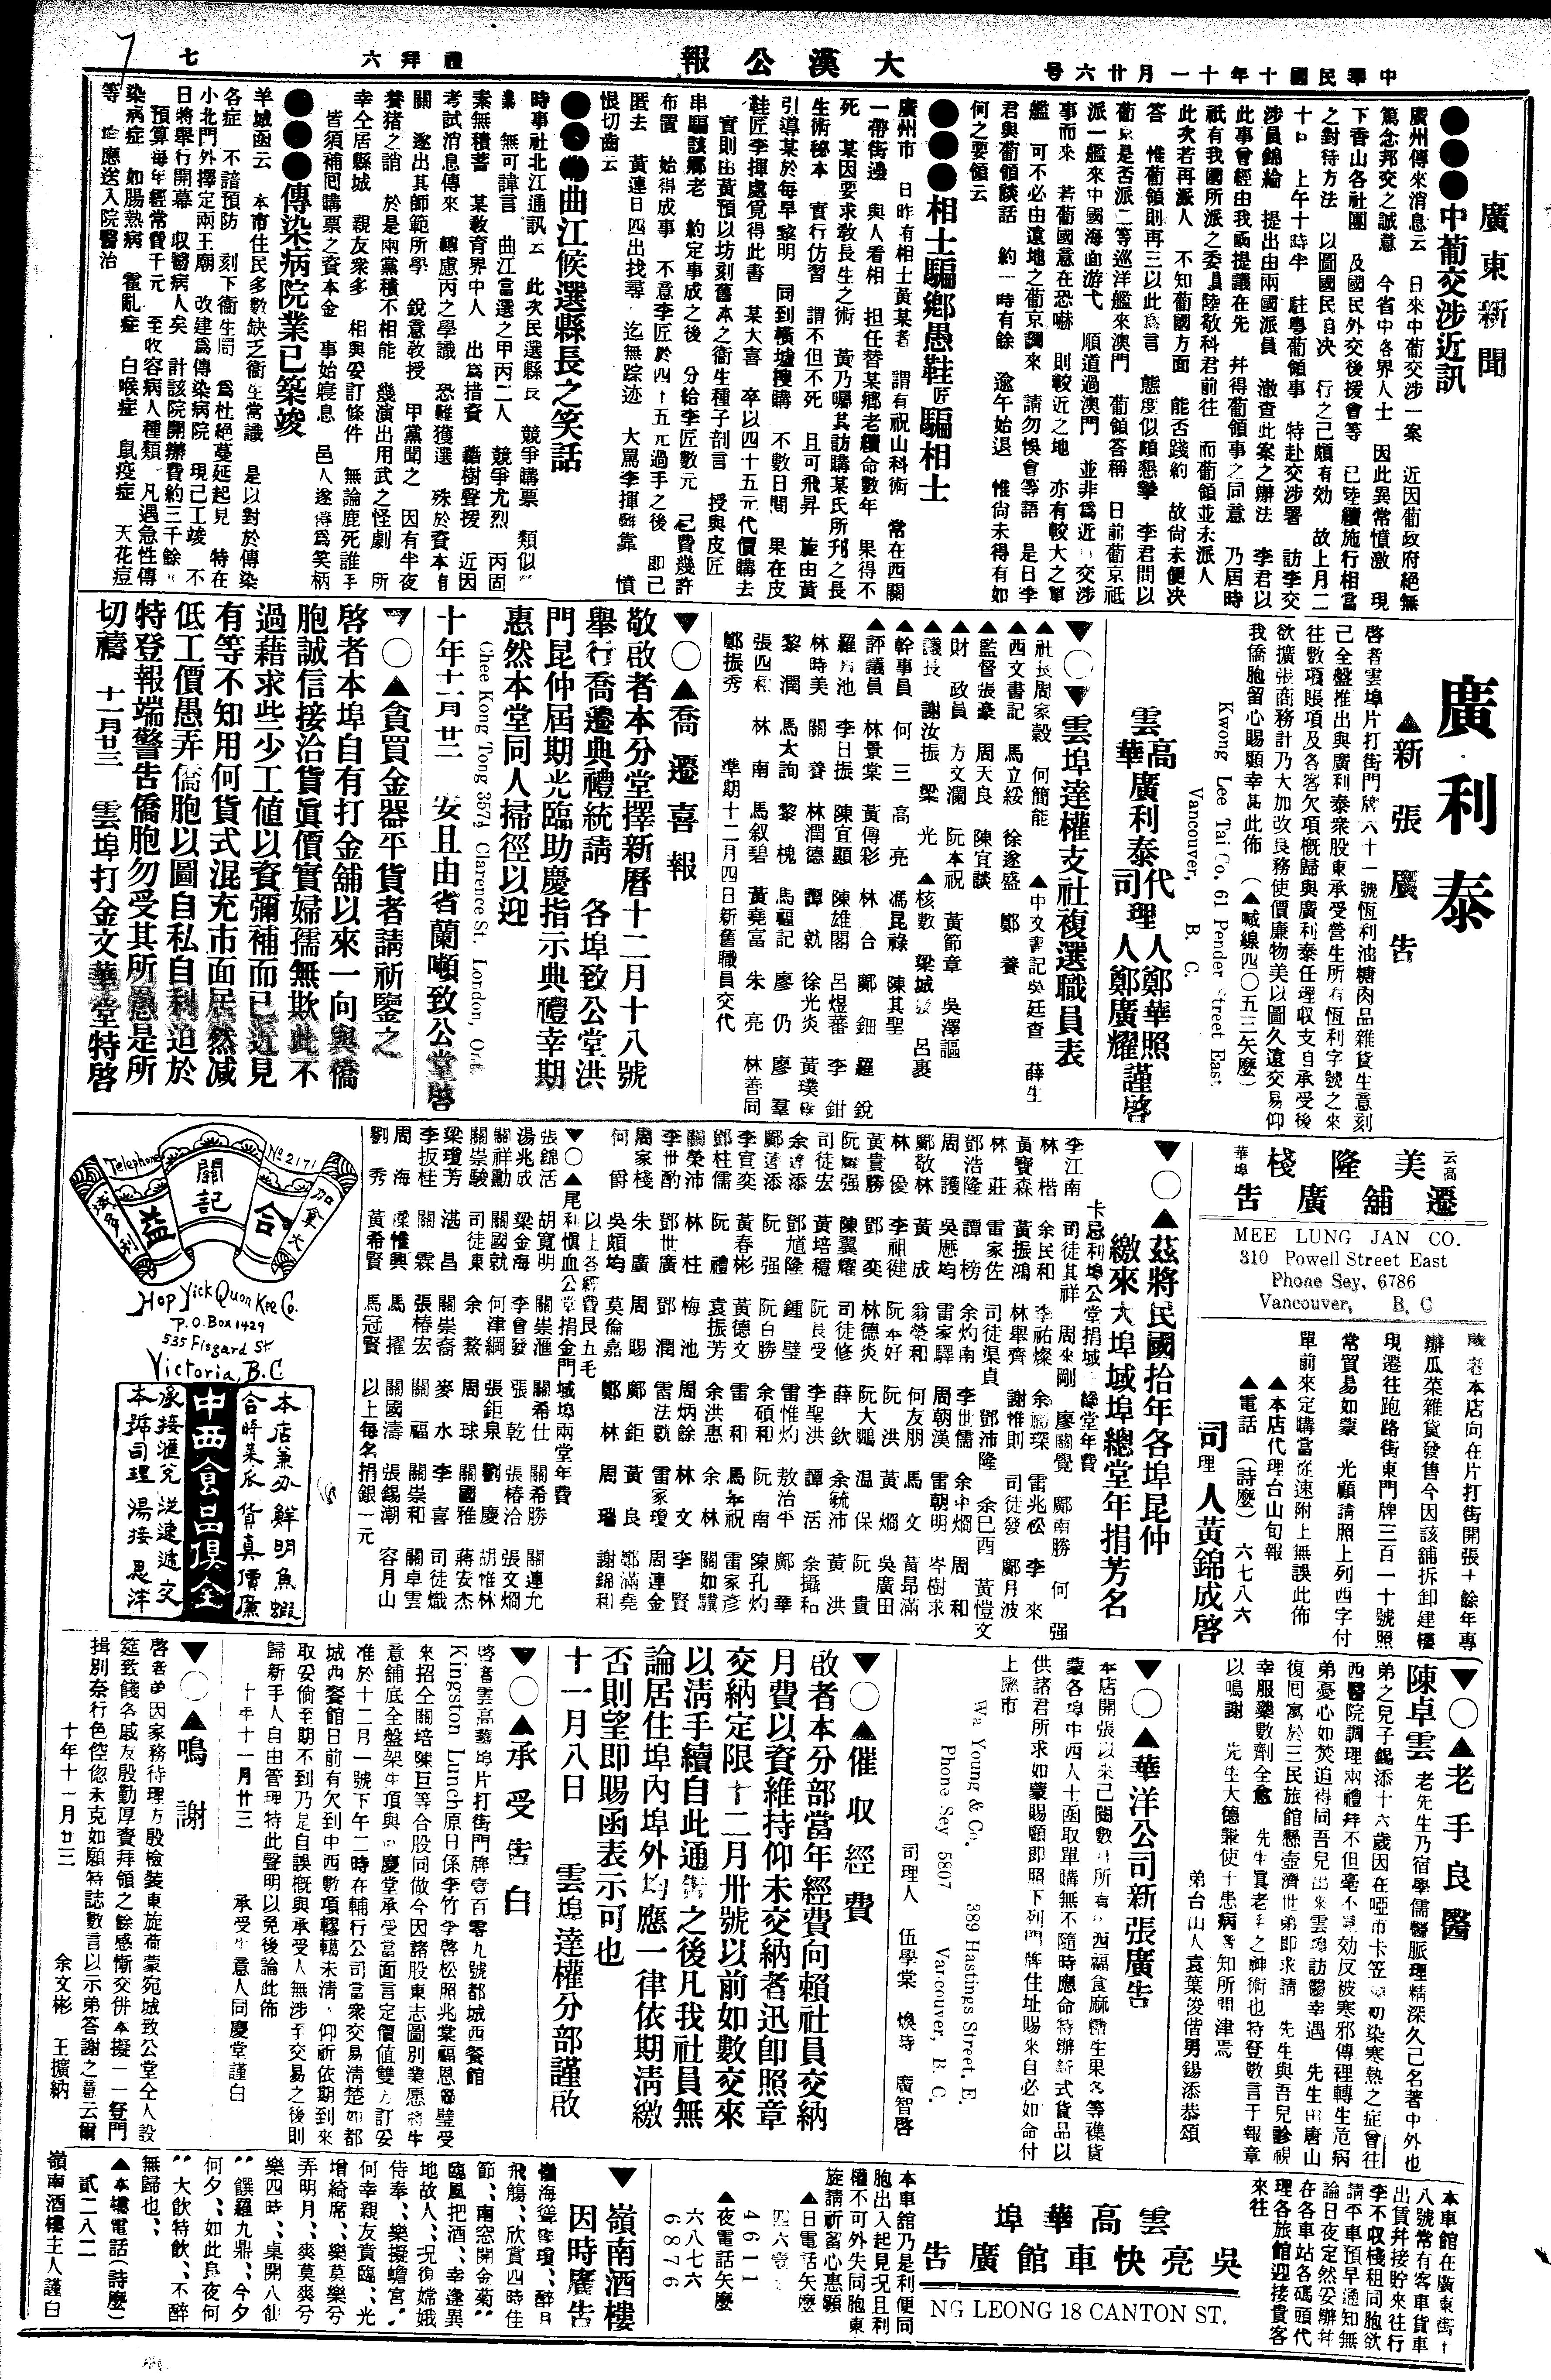 中華民國十年十一月廿六号
大漢公報
禮拜六
七
廣東新聞
●●●中葡交涉近訊
廣州傳來消息云 日來中葡交涉一案 近因葡政府絕無
篤念邦交之誠意 今省中各界人士 因此異常憤激 現
下香山各社團 及國民外交後援會等 已陸續施行相當
之對待方法 以圖國民自决 行之已頗有効 故上月二
十日 上午十時半 駐粤葡領事 特赴交涉署 訪李交
涉員錦綸 提出由兩國派員 澈查此案之辦法 李君以
此事曾經由我國提議在先 幷得葡領事之同意 乃屆時
祇有我國所派之委員陸敬科君前往 而葡領並未派人
此次若再派人 不知葡國方面 能否踐約 故尙未便决
答 惟葡領則再三以此爲言 態度似頗懇摯 李君問以
葡京是否派二等巡洋艦來澳門 葡領答稱 日前葡京祗
派一艦來中國海面游弋 順道過澳門 並非爲近日交涉
事而來 若葡國意在恐嚇 則較近之地 亦有較大之軍
艦 可不必由遠地之葡京調來 請勿悞會等語 是日李
君與葡領談話 約一時有餘 逾午始退 惟尙未得有如
何之要領云
●●●相士騙鄉愚鞋匠騙相士
廣州市 日昨有相士黃某者 謂有祝山科術 常在西關
一帶街邊 與人看相 担任替某鄉老續命數年 果得不
死 某因要求敎長生之術 黃乃囑其訪購某氏所刋之長
生術秘本 實行仿習 謂不但不死 且可飛昇 旋由黃
引導某於每早黎明 同到橫墟搜購 不數日間 果在皮
鞋匠李揮處覓得此書 某大喜 卒以四十五元代價購去
實則由黃預以坊刻舊本之衞生種子剖言 授與皮匠
串騙該鄉老 約定事成之後 分給李匠數元 已費幾許
布置 始得成事 不意李匠於四十五元過手之後 即己
匿去 黃連日四出找尋 迄無踪迹 大罵李揮雖靠 憤
恨切齒云
●●●曲江候選縣長之笑話
時事社北江通訊云 此次民選縣長 競爭購票 類似
無可諱言 曲江當選之甲丙二人 競爭尤烈 丙固
案無積蓄 某敎育界中人 出爲措資 藉樹聲援 近因
考試消息傳來 轉慮丙之學識 恐難獲選 殊於資本有
關 遂出其師範所學 銳意敎授 甲黨聞之 因有半夜
養猪之誚 於是兩黨積不相能 幾演出用武之怪劇 所
幸仝居縣城 親友衆多 相與妥訂條件 無論鹿死誰手
皆須補囘購票之資本金 事始寢息 邑人遂得爲笑柄
●●●傳染病院業已築竣
羊城函云 本市住民多數缺乏衞生常識 是以對於傳染
各症 不諳預防 刻下衞生局 爲杜絕蔓延起見 特在
小北門外擇定兩王廟 改建爲傳染病院 現已工竣 不
日將舉行開幕 収醫病人矣 計該院開辦費約三千餘
預算每年經常費千元 至收容病人種類 凡遇急性傳
染病症 如腸熱病 霍亂症 白喉症 鼠疫症 天花痘
等 應送入院醫治
廣利泰
▲新張廣告
啓者雲埠片打街門牌六十一號恆利油糖肉品雜貨生意刻
己全盤推出與廣利泰衆股東承受營生所有恆利字號之來
往數項賬項及各客欠項概歸與廣利泰任理収支自承受後
欲擴張商務計乃大加改良務使價廉物美以圖久遠交易仰
我僑胞留心賜顧幸甚此佈 (▲喊線四〇五三矢麽)
Kwong Lee Tai Co, 61 Pender Street East
Vancouver, B. C.
雲高華廣利泰代理人鄭華照
司理人鄭廣耀謹啓
▼〇▼雲埠達權支社複選職員表
▲社長周家毅 何簡能 ▲中文書記吳廷查 薛生
▲西文書記 馬立綏 徐遂盛 鄭養
▲監督張豪 周天良 陳宜談
▲財政員 方文瀾 阮本祝 黃節章 吳澤謳
▲議長 謝汝振 梁光 ▲核數 梁城 呂裹
▲幹事員 何三 高亮 馮昆祿 陳其聖
▲評議員 林景棠 黃傳彩 林合 鄺鈿 羅銳
羅池 李日振 陳宜顯 陳雄閣 呂煜蕃 李鉗
林時美 關養 林潤德 譚就 徐光炎 黃璞
黎潤 馬大詢 黎槐 馬福記 廖仍 廖羣
張四和 林南 馬叙碧 黃堯富 朱亮 林善同
鄭振秀 準期十二月四日新舊職員交代
▼〇▲喬遷喜報
敬啟者本分堂擇新曆十二月十八號
舉行喬遷典禮統請 各埠致公堂洪
門昆仲屆期光臨助慶指示典禮幸期
惠然本堂同人掃徑以迎
Chee Kong Tong 357½ Clarence St. London, Ont.
十年十一月廿二 安且由省蘭頓致公堂啓
▼〇▲貪買金器平貨者請祈鑒之
啓者本埠自有打金舖以來一向與僑
胞誠信接洽貨眞價實婦孺無欺此不
過藉求些少工值以資彌補而已近見
有等不知用何貨式混充市面居然減
低工價愚弄僑胞以圖自私自利迫於
特登報端警告僑胞勿受其所愚是所
切禱 十一月廿三 雲埠打金文華堂特啓
云高華埠美隆棧
遷舖廣告
MEE LUNG JAN CO.
310 Powell Street East
Phone Sey. 6786
Vancouver, B. C
啟者本店向在片打街開張十餘年專
辦瓜菜雜貨發售今因該舖拆卸建樓
現遷往跑路街東門牌三百一十號照
常貿易如蒙 光顧請照上列西字付
單前來定購當從速附上無誤此佈
▲本店代理台山旬報
▲電話(詩麽)六七八六
司理人黃錦成啓
▼〇▲茲將民國拾年各埠昆仲
繳來大埠域埠總堂年捐芳名
卡忌利埠公堂捐域埠總堂年費
李江南 司徒其祥 周來剛 廖關覺 鄺南勝 何强
林楷 余民和 李祐燦 余瞻琛 雷兆松 李來
黃寶森 黃振鴻 林舉齊 謝惟則 司徒發 鄺月波
林莊 雷家佐 司徒渠貞 鄧沛隆 余巳酉 黃愷文
鄧浩隆 譚榜 余灼南 李世儒 余中燗 周和
周護 吳懸均 雷家驛 周朝漢 雷朝明 岑樹求
鄭敬林 黃成 翁榮和 何友朋 馬文 黃昂滿
林優 李祖健 阮本好 阮洪 黃燗 吳廣田
黃貴勝 鄧奕 林德炎 阮大鵬 温保 阮貴
阮擴强 陳翼耀 司徒修 薛欽 余毓沛 黃洪
司徒宏 黃培穩 阮良受 李聖洪 譚活 余攝和
余譱添 鄧馗隆 鍾璧 雷惟灼 敖治平 鄺華
鄺譱添 阮强 阮白勝 余碩和 阮南 陳孔灼
李宣奕 黃春彬 黃德文 雷和 馬本祝 雷家彥
鄧柱儒 阮禮 袁振芳 余洪惠 余林 關如驥
關榮沛 林柱 梅池 周炳餘 林文 李賢
李世酌 鄧世廣 鄧潤 雷法覩 雷家瓊 周連金
周家棧 朱廣 周賜 鄺鉅 黃良 鄭滿堯
何爵 吳頗均 莫倫嘉 鄭林 周瑞 謝錦和
以上各經費艮五毛
▼〇▲尾利慎血公堂捐金門域埠兩堂年費
張錦活 胡寬明 關崇滙 關希仕 關希勝 關連允
湯兆成 梁金海 李會發 張乾 張椿洽 張文燗
關祥勳 關國就 何津綱 張鉅泉 劉慶 胡惟林
關崇駿 司徒東 余鰲 周球 關國雅 蔣安杰
梁瓊芳 湛昌 關崇裔 麥水 李喜 司徒熾
李扳桂 關霖 張椿宏 關福 關崇和 關卓雲
周海 梁惟興 馬擢 關國濤 張錫潮 容月山
劉秀 黃希賢 馬冠賢 以上每名捐銀一元
Telephone No 2171
加拿大 域多利
關記 合益
Hop Yick Quon Kee Co.
P.O. Box 1429
535 Fisgard St
Victoria, B.C
本店兼办鮮明魚蝦
合時菜瓜貨真價廉
中西食品俱全
承接滙兌從速遞交
本號司理湯接晨洋
▼〇▲老手良醫
陳卓雲老先生乃宿學儒醫脈理精深久己名著中外也
弟之兒子錫添十六歲因在啞市卡笠初染寒熱之症曾往
西醫院調理兩禮拜不但毫不見効反被寒邪傳裡轉生危病
弟憂心如焚迫得同吾兒出來雲埠訪醫幸遇 先生由唐山
復囘寓於三民旅館懸壺濟世弟即求請 先生與吾兒診視
幸服藥數劑全愈 先生眞老手之神術也特登數言于報章
以鳴謝 先生大德兼使患病者知所問津焉
弟台山人袁葉浚偕男錫添恭頌
▼〇▲華洋公司新張廣告
本店開張以來己閱數月所有中西福食麻糖生果各等襍貨
蒙各埠中西人士函取單購無不隨時應命特辦新式貨品以
供諸君所求如蒙賜顧即照下列門牌住址賜來自必如命付
上應市
Wa Young & Co. 389 Hastings Street, E.
Phone Sey 5807 Vancouver, B. C.
司理人 伍學棠 煥時 廣智啓
▼〇▲催收經費
啟者本分部當年經費向賴社員交納
月費以資維持仰未交納者迅卽照章
交納定限十二月卅號以前如數交來
以清手續自此通告之後凡我社員無
論居住埠內埠外均應一律依期清繳
否則望即賜函表示可也
十一月八日 雲埠達權分部謹啟
▼〇▲承受告白
啓者雲高華埠片打街門牌壹百零九號都城西餐館
Kingston Lunch原日係李竹李啓松照兆棠福恩璧受
來招仝關培陳巨等合股同做今因諸股東志圖別業愿將生
意舖底全盤架生項與同慶堂承受當面言定價值雙方訂妥
准於十二月一號下午二時在輔行公司當衆交易清楚如都
城西餐館日前有欠到中西數項轇轕未清,仰祈依期到來
取妥倘至期不到乃是自誤概與承受人無涉至交易之後則
歸新手人自由管理特此聲明以免後論此佈
十年十一月廿三 承受生意人同慶堂謹白
▼〇▲鳴謝
啓者弟因家務待理方殷檢裝東旋荷蒙宛城致公堂仝人設
筵致餞各戚友殷勤厚賚拜領之餘感慚交併本擬一一登門
揖別奈行色倥偬未克如願特誌數言以示弟答謝之意云爾
十年十一月廿三 余文彬 王擴納
雲高華埠
吳亮快車館廣告
NG LEONG 18 CANTON ST.
本車館在廣東街十
八號常有客車貨車
出賃幷接貯來往行
李不収棧租同胞欲
請平車預早通知無
論日夜定然妥辦幷
在各車站各碼頭代
理各旅館迎接貴客
來往
本車舘乃是利便同
胞出入起見况且利
權不可外失同胞東
旋請祈留心惠顧
▲日電話矢麽
四六壹壹
4611
▲夜電話矢麽
六八七六
6876
▼嶺南酒樓
因時廣告
飛觴、欣賞四時佳
節、南窓開金菊、
臨風把酒、幸逢異
地故人、况復嫦娥
侍奉、樂擬蟾宮、
何幸親友賁臨、光
增綺席、樂莫樂兮
弄明月、爽莫爽兮
樂四時、桌開八仙
饌羅九鼎、今夕
何夕、如此良夜何
大飲特飲、不醉
無歸也、
▲本樓電話(詩麽)
貳二八二
嶺南酒樓主人謹白